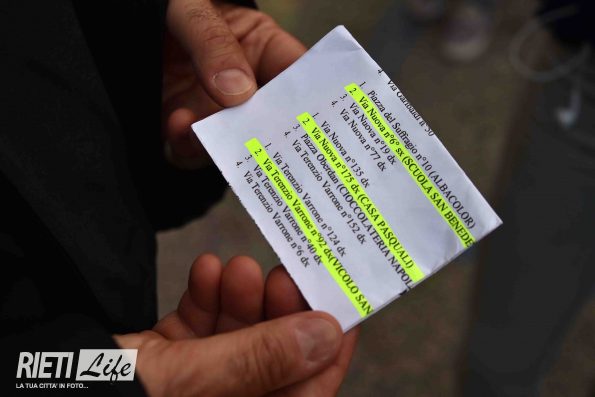 4. Via Garibaldi n°50
1. Piazza del Suffragio n°10 (ALBACOLOR)
2. Via Nuova n°6° sx (SCUOLA SAN BENEDE
3. Via Nuova n°19 dx
4. Via Nuova n°77 dx
1. Via Nuova n°135 dx
2. Via Nuova n°175 dx (CASA PASQUALI)
3. Piazza Oberdan (CIOCCOLATERIA NAPOL
4. Via Terenzio Varrone n°152 dx
1. Via Terenzio Varrone n°124 dx
2. Via Terenzio Varrone n°92 dx(VICOLO SAN
3. Via Terenzio Varrone n°40 dx
4. Via Terenzio Varrone n°6 dx
RIETI Life
LA TUA CITTA' IN FOTO...